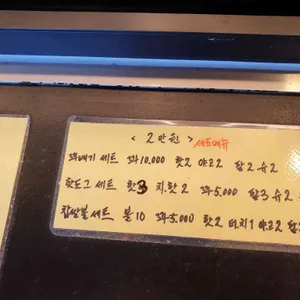 < 2만원 > 세트메뉴
꽈배기 세트 꽈10,000 핫2 야로2 팥2 슈2
핫도그 세트 핫3 치.핫2 꽈5,000 팥3 슈2
찹쌀볼세트 볼10 꽈5,000 핫2 더치1 야로2